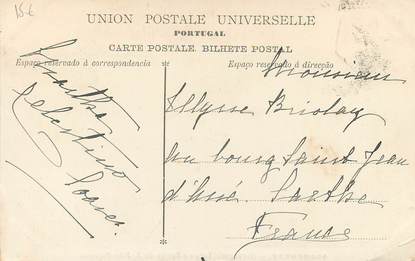 15€
UNION POSTALE UNIVERSELLE
PORTUGAL
CARTE POSTALE. BILHETE POSTAL
Espaço reservado á correspondencia
Espaço reservado á direcção
Monsieur
Ulysse
au bourg Saint Jean
d'Assé. Sarthe
France
Celestino
Soares.